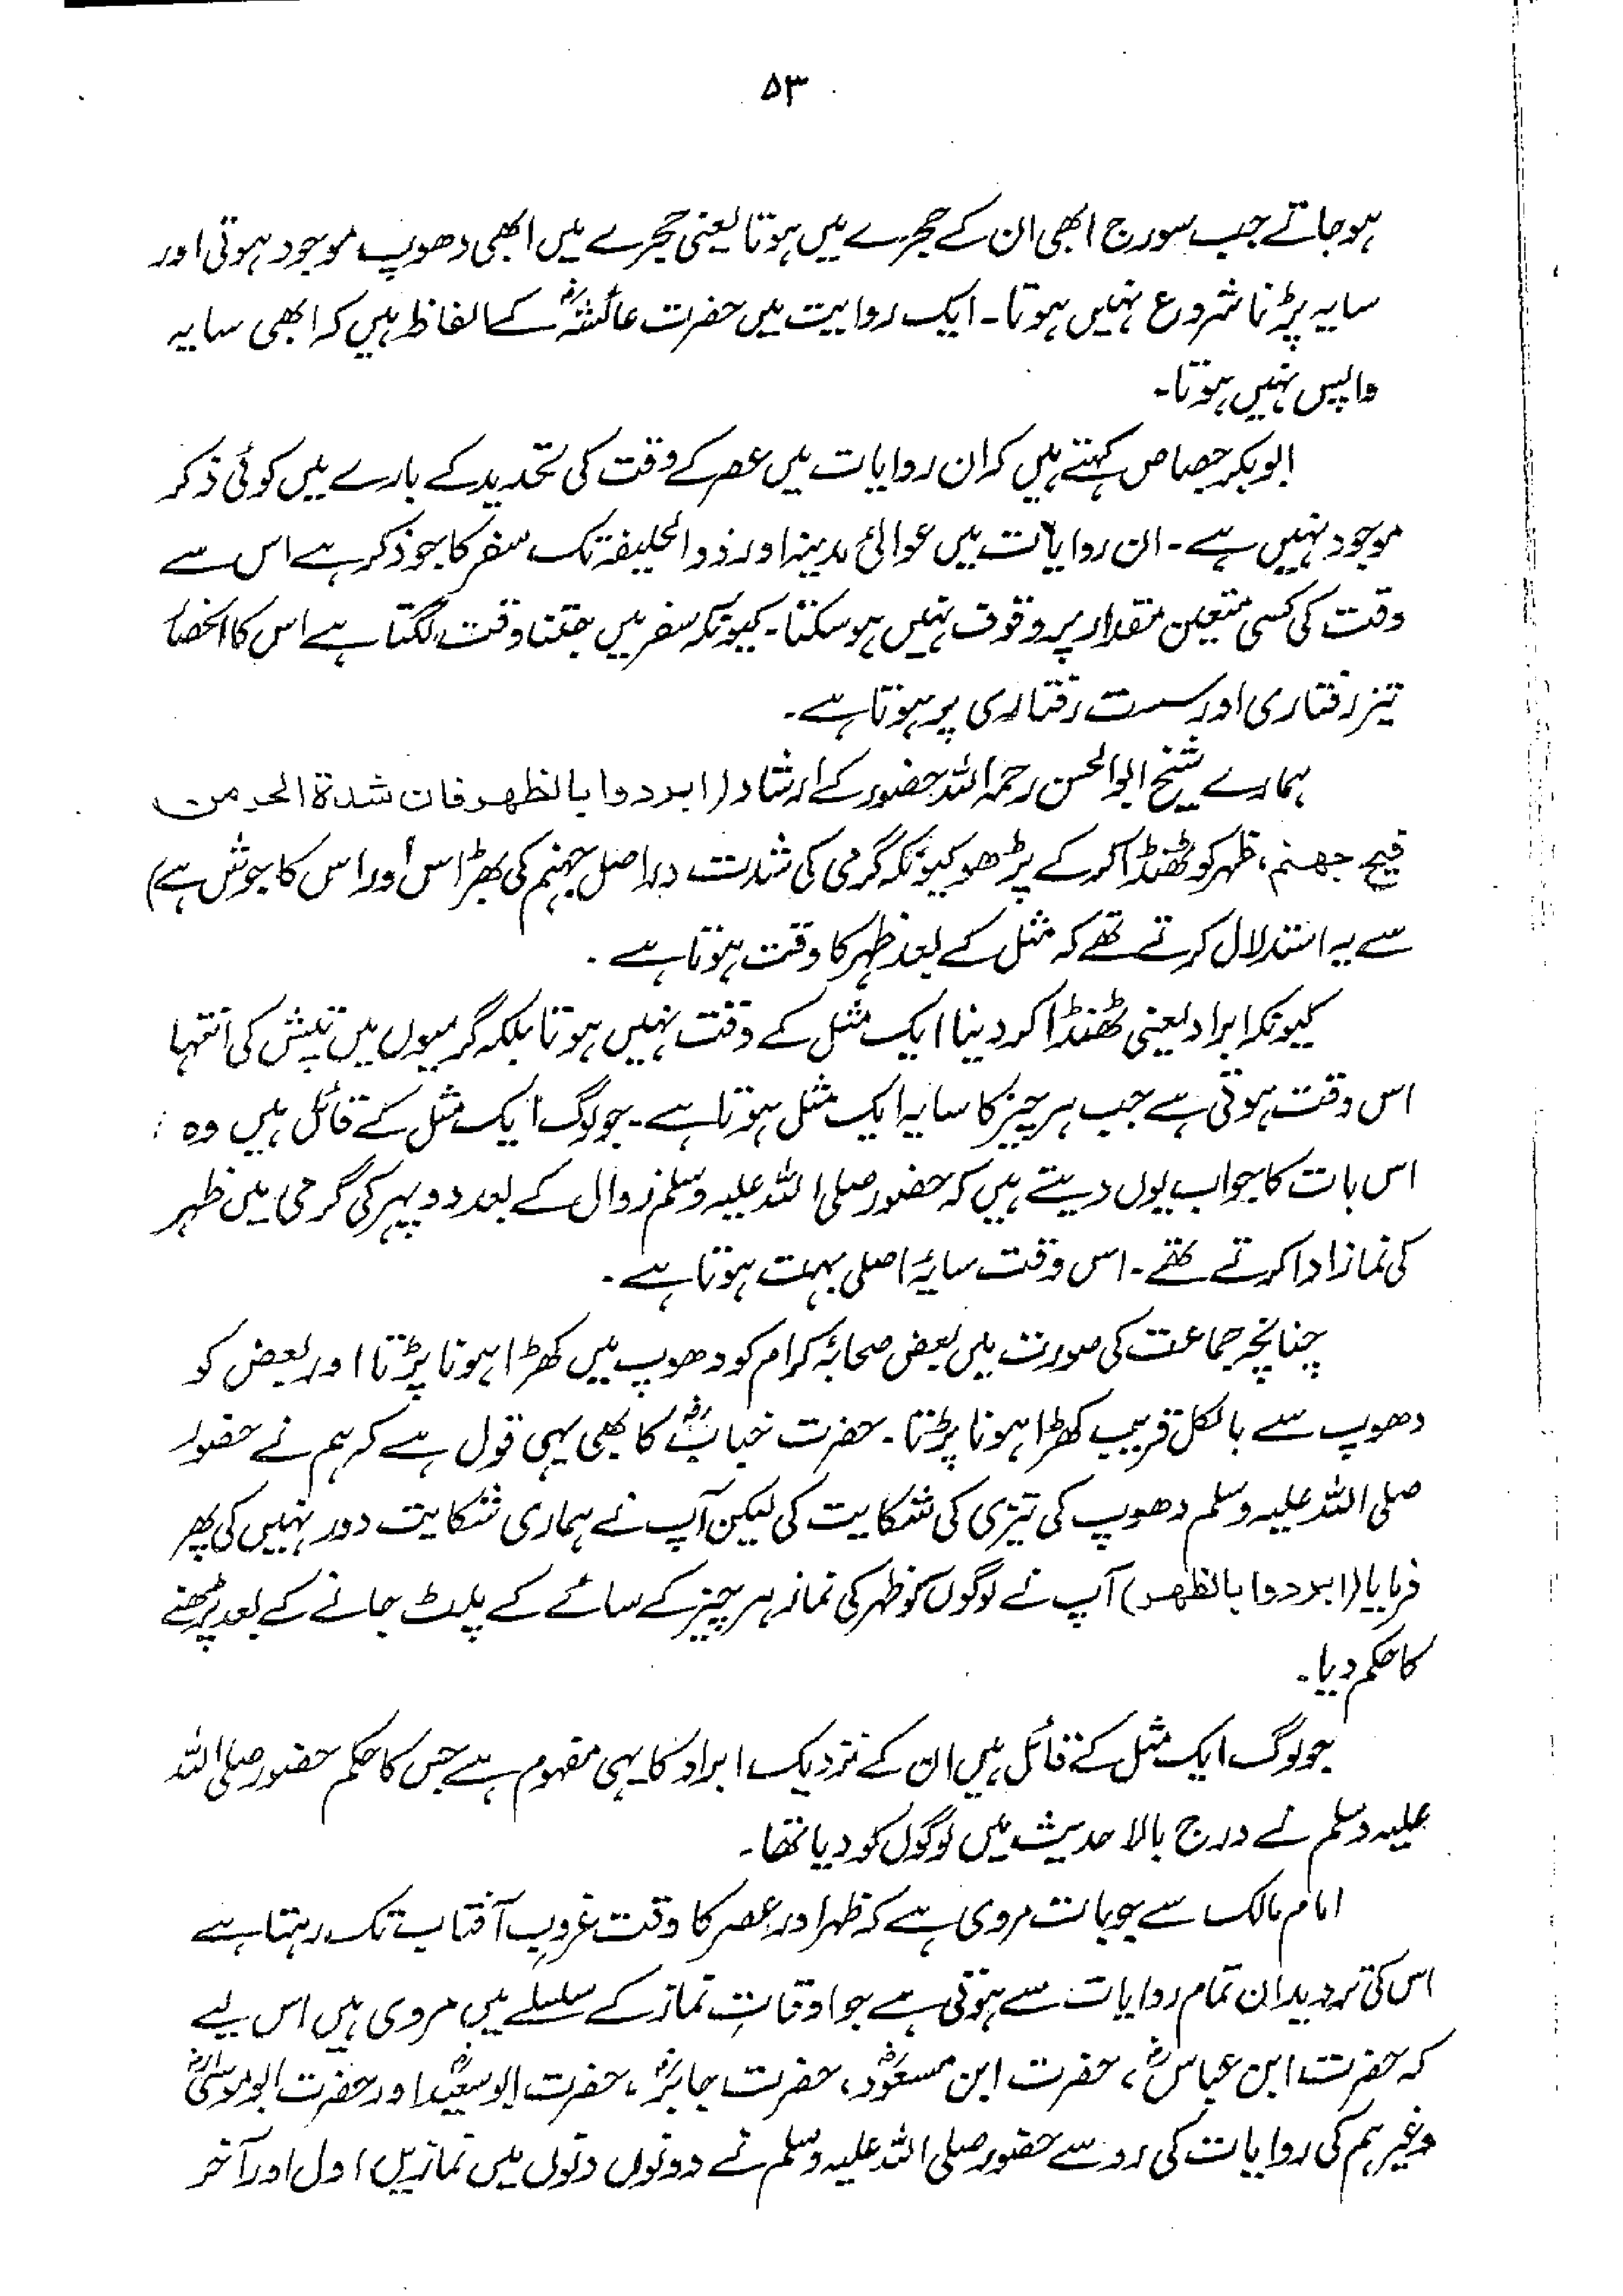 ۵۳
ہو جاتے جب سورج ابھی ان کے حجرے میں ہوتا یعنی حجرے میں ابھی دھوپ موجود ہوتی اور
سایہ پڑنا شروع نہیں ہوتا۔ ایک روایت میں حضرت عائشہؓ کے الفاظ ہیں کہ ابھی سایہ
واپس نہیں ہوتا۔
ابوبکر جصاص کہتے ہیں کہ ان روایات میں عصر کے وقت کی تحدید کے بارے میں کوئی ذکر
موجود نہیں ہے۔ ان روایات میں عوالیٔ مدینہ اور ذوالحلیفہ تک سفر کا جو ذکر ہے اس سے
وقت کی کسی متعین مقدار پر وقوف نہیں ہو سکتا۔ کیونکہ سفر میں جتنا وقت لگتا ہے اس کا انحصار
تیز رفتاری اور سست رفتاری پر ہوتا ہے۔
ہمارے شیخ ابوالحسن رحمہ اللہ حضور کے ارشاد (ابردوا بالظهر فان شدة الحر من
فیح جهنم، ظہر کو ٹھنڈا کر کے پڑھو کیونکہ گرمی کی شدت دراصل جہنم کی بھڑاس اور اس کا جوش ہے)
سے یہ استدلال کرتے تھے کہ مثل کے بعد ظہر کا وقت ہوتا ہے۔
کیونکہ ابراد یعنی ٹھنڈا کر دینا ایک مثل کے وقت نہیں ہوتا بلکہ گرمیوں میں تپش کی انتہا
اس وقت ہوتی ہے جب ہر چیز کا سایہ ایک مثل ہوتا ہے۔ جو لوگ ایک مثل کے قائل ہیں وہ
اس بات کا جواب یوں دیتے ہیں کہ حضور صلی اللہ علیہ وسلم زوال کے بعد دوپہر کی گرمی میں ظہر
کی نماز ادا کرتے تھے۔ اس وقت سایۂ اصلی بہت ہوتا ہے۔
چنانچہ جماعت کی صورت میں بعض صحابۂ کرام کو دھوپ میں کھڑا ہونا پڑتا اور بعض کو
دھوپ سے بالکل قریب کھڑا ہونا پڑتا۔ حضرت خبابؓ کا بھی یہی قول ہے کہ ہم نے حضور
صلی اللہ علیہ وسلم دھوپ کی تیزی کی شکایت کی لیکن آپ نے ہماری شکایت دور نہیں کی پھر
فرمایا (ابردوا بالظهر) آپ نے لوگوں کو ظہر کی نماز ہر چیز کے سائے کے پلٹ جانے کے بعد پڑھنے
کا حکم دیا۔
جو لوگ ایک مثل کے قائل ہیں ان کے نزدیک ابراد کا یہی مفہوم ہے جس کا حکم حضور صلی اللہ
علیہ وسلم نے درج بالا حدیث میں لوگوں کو دیا تھا۔
امام مالک سے جو بات مروی ہے کہ ظہر اور عصر کا وقت غروبِ آفتاب تک رہتا ہے
اس کی تردید ان تمام روایات سے ہوتی ہے جو اوقاتِ نماز کے سلسلے میں مروی ہیں اس لیے
کہ حضرت ابن عباسؓ، حضرت ابن مسعودؓ، حضرت جابرؓ، حضرت ابوسعیدؓ اور حضرت ابوموسیٰؓ
وغیرہم کی روایات کی رو سے حضور صلی اللہ علیہ وسلم نے دونوں دنوں میں نمازیں اول اور آخر